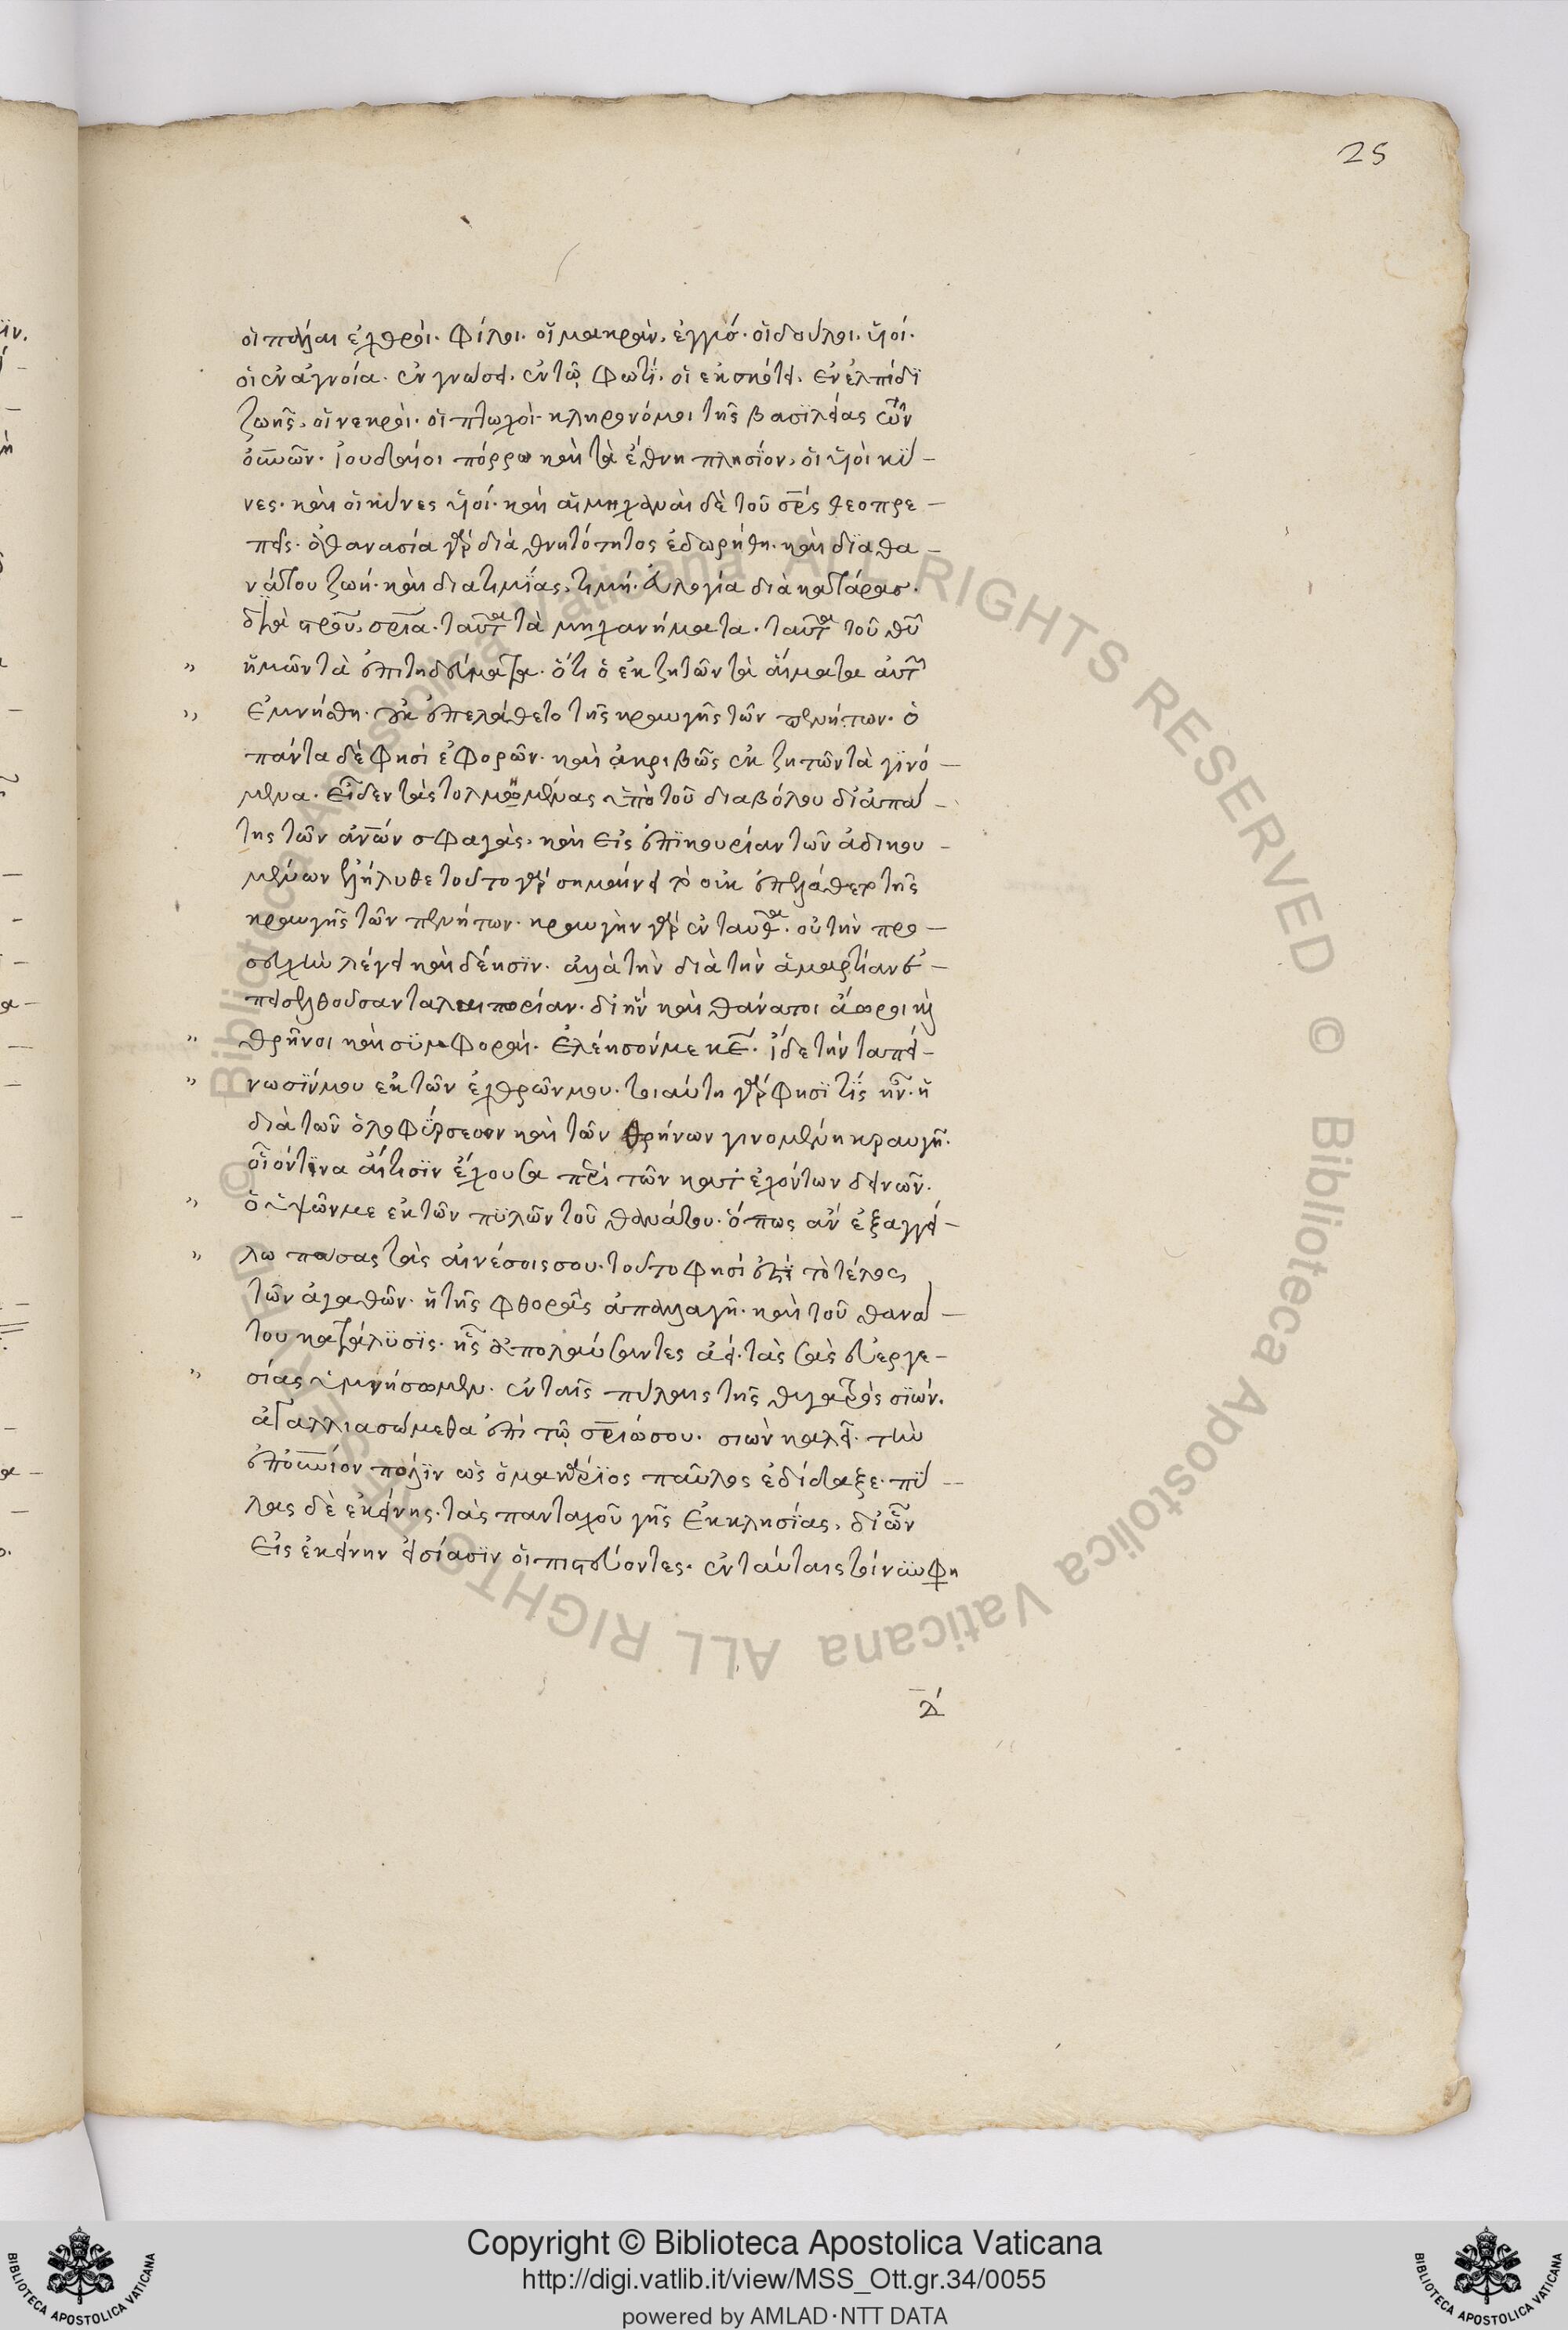 25
οἱ πάλαι ἐχθροὶ. φίλοι. οἱ μακρὰν, ἐγγύς. οἱ δοῦλοι. υἱοί.
οἱ ἐν ἀγνοία. ἐν γνώσει. ἐν τῶ φωτί. οἱ ἐν σκότει. ἐν ἐλπίδι
ζωῆς, οἱ νεκροὶ. οἱ πτωχοὶ. κληρονόμοι τῆς βασιλείας τῶν
οὐνῶν. ἰουδαῖοι πόρρω καὶ τὰ ἔθνη πλησίον. οἱ υἱοὶ κύ-
νες. καὶ οἱ κύνες υἱοί. καὶ αἱ μηχαναὶ δὲ τοῦ σρς θεοπρε-
πεῖς. ἀθανασία γὰρ διὰ θνητότητος ἐδωρήθη. καὶ διὰ θα-
νάτου ζωή. καὶ δι ἀτιμίας, τιμή. εὐλογία διὰ κατάρας.
διὰ σρου, σρια. ταῦτα τὰ μηχανήματα. ταῦτα τοῦ θυ
ἡμῶν τὰ ἐπιτηδεύματα. ὅτι ὁ ἐκζητῶν τὰ αἵματα αὐτ
ἐμνήσθη. οὐκ ἐπελάθετο τῆς κραυγῆς τῶν πενήτων. ὁ
πάντα δὲ φησὶ ἐφορῶν. καὶ ἀκριβῶς ἐκζητῶν τὰ γινό-
μενα. εἶδεν τὰς τολμωμένας ὑπὸ τοῦ διαβόλου δι ἀπά-
της τῶν ἀνων σφαγὰς. καὶ εἰς ἐπικουρίαν τῶν ἀδικου-
μένων ἐξήλυθε τοῦτο γὰρ σημαίνει τὸ οὐκ ἐπελάθετο τῆς
κραυγῆς τῶν πενήτων. κραυγὴν γὰρ ἐνταῦθα. οὐ τὴν προ-
σευχὴν λέγει καὶ δέησιν. ἀλλὰ τὴν διὰ τὴν ἁμαρτίαν ἐ-
πεισελθοῦσαν ταλαιπορίαν. δι ἣν καὶ θάνατοι ἄωροι κ
θρῆνοι καὶ συμφοραὶ. ἐλέησόν με κε. ἴδε τὴν ταπεί-
νωσίν μου ἐκ τῶν ἐχθρῶν μου. τοιαύτη γὰρ φησί τίς ἦν. ἡ
διὰ τῶν ὀλοφύρσεων καὶ τῶν θρήνων γινομένη κραυγή.
οἱονεί τινα αἴτησιν ἔχουσα περὶ τῶν κατεχόντων δεινῶν.
ὁ ὑψῶν με ἐκ τῶν πυλῶν τοῦ θανάτου. ὅπως ἂν ἐξαγγεί-
λω πάσας τὰς αἰνέσεις σου. τοῦτο φησί ἐστι τὸ τέλος
τῶν ἀγαθῶν. ἡ τῆς φθορᾶς ἀπαλλαγή. καὶ τοῦ θανά-
του κατάλυσις. ἧς ἀπολαύσαντες ἀεὶ. τὰς σὰς εὐεργε-
σίας ὑμνήσομεν. ἐν ταῖς πύλαις τῆς θυγατρὸς σιών.
ἀγαλλιασώμεθα ἐπὶ τῶ σριω σου. σιὼν καλεῖ. τὴν
ἐπουνιον πόλιν ὡς ὁ μακάριος παῦλος ἐδίδαξε. πύ-
λας δὲ ἐκείνης. τὰς πανταχοῦ γῆς ἐκκλησίας, δι ὧν
εἰς ἐκείνην εἰσίασιν οἱ πιστεύοντες. ἐν ταύταις
Copyright © Biblioteca Apostolica Vaticana
http://digi.vatlib.it/view/MSS_Ott.gr.34/0055
powered by AMLAD·NTT DATA
BIBLIOTECA APOSTOLICA VATICANA
BIBLIOTECA APOSTOLICA VATICANA
© Biblioteca Apostolica Vaticana ALL RIGHTS RESERVED © Biblioteca Apostolica Vaticana ALL RIGHTS RESERVED